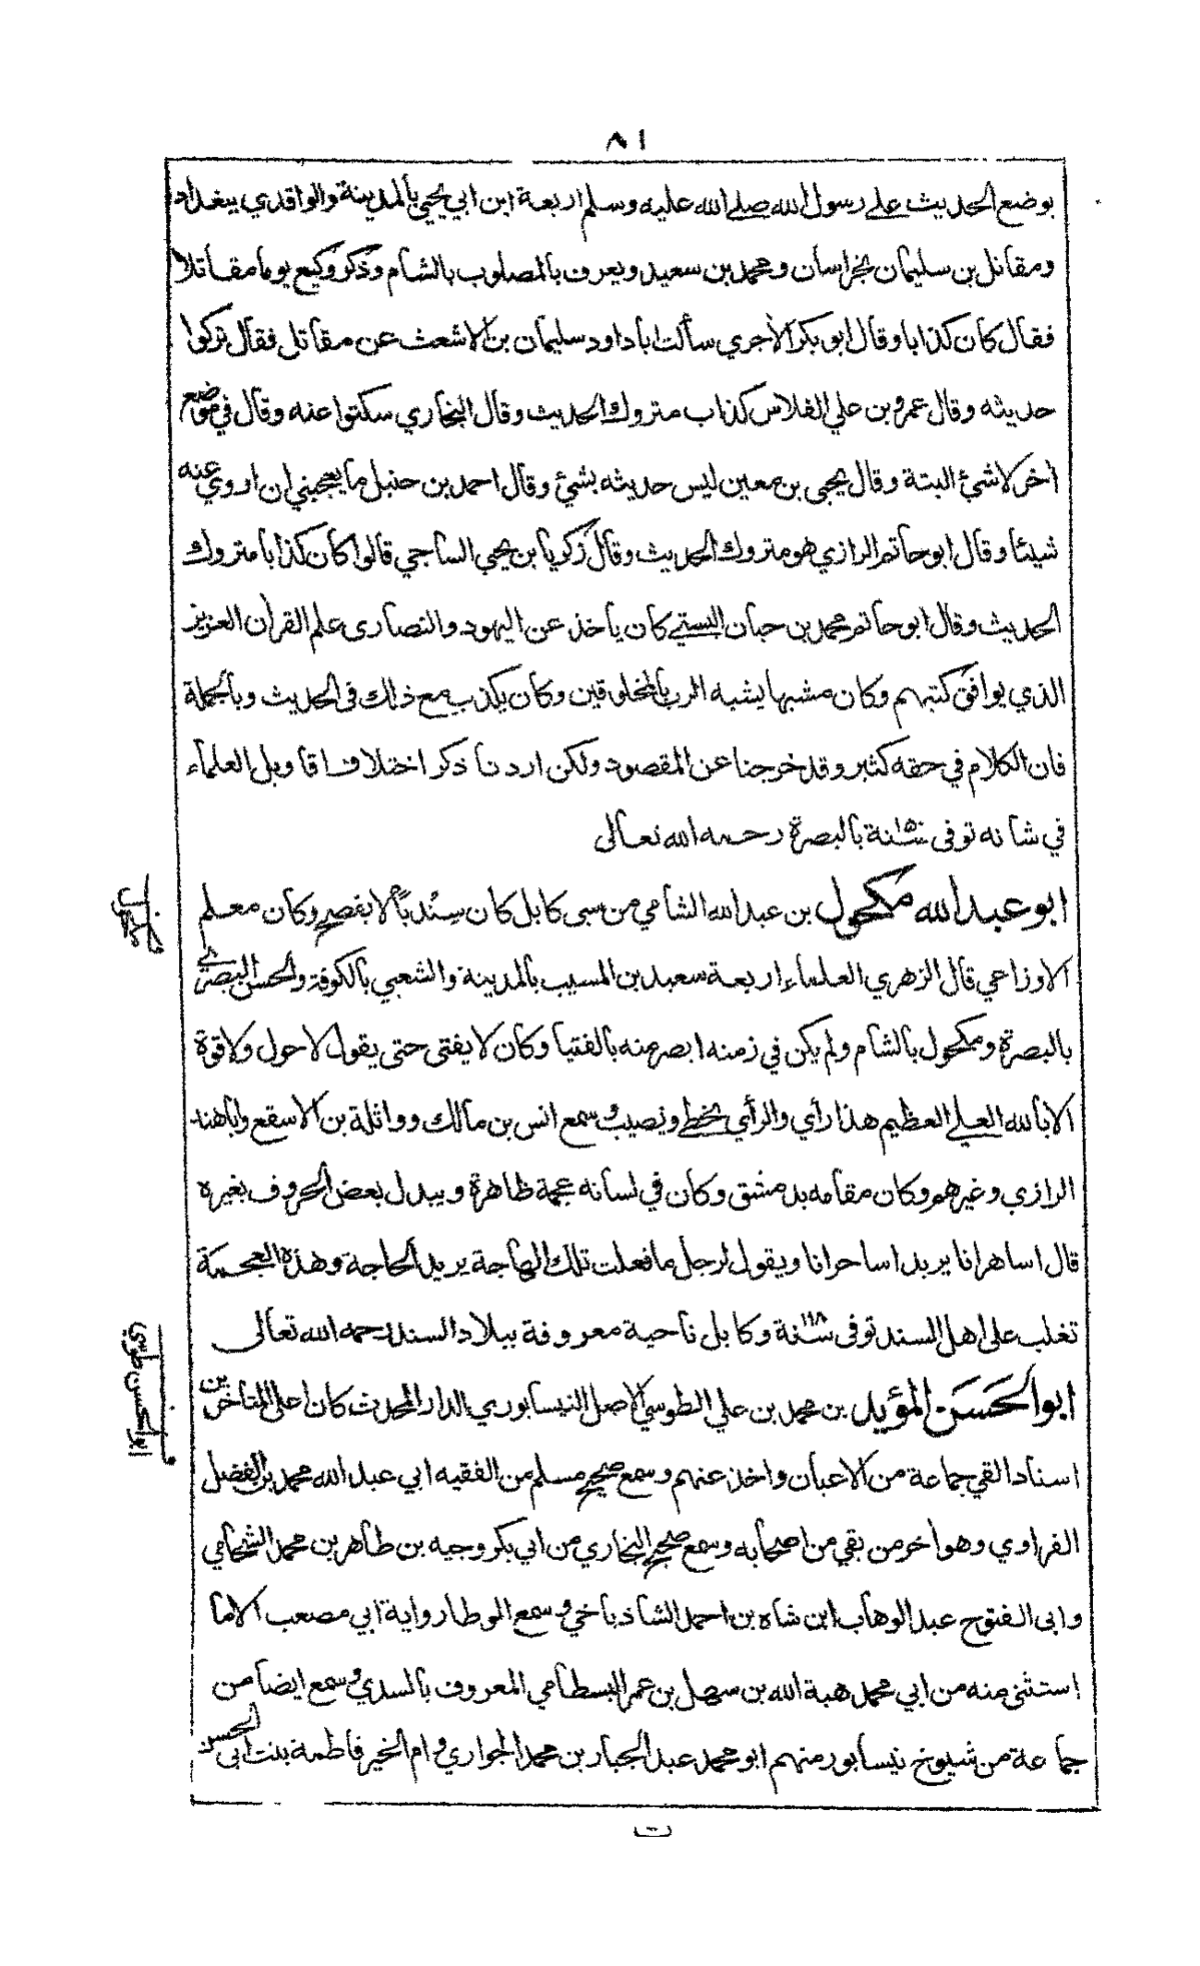 ٨١
بوضع الحديث على رسول الله صلى الله عليه وسلم اربعة ابن ابي يحيى بالمدينة والواقدي ببغداد
ومقاتل بن سليمان بخراسان ومحمد بن سعيد ويعرف بالمصلوب بالشام وذكر وكيع يوما مقاتلا
فقال كان كذابا وقال ابو بكر الآجري سألت اباداود سليمان بن الاشعث عن مقاتل فقال تركوا
حديثه وقال عمرو بن علي الفلاس كذاب متروك الحديث وقال البخاري سكتوا عنه وقال في موضع
اخر لاشئ البتة وقال يحيى بن معين ليس حديثه بشئ وقال احمد بن حنبل ما يعجبني ان اروي عنه
شيئا وقال ابو حاتم الرازي هو متروك الحديث وقال زكريا بن يحيي الساجي قالوا كان كذابا متروك
الحديث وقال ابو حاتم محمد بن حبان البستي كان ياخذ عن اليهود والنصارى علم القرآن العزيز
الذي يوافق كتبهم وكان مشبها يشبه الرب بالمخلوقين وكان يكذب مع ذلك في الحديث وبالجملة
فان الكلام في حقه كثير وقد خرجنا عن المقصود ولكن اردنا ذكر اختلاف اقاويل العلماء
في شانه توفى سنة ١٥٠ بالبصرة رحمه الله تعالى
ابو عبد الله مكحول بن عبد الله الشامي من سبى كابل كان سِنْدياً لا يفصح وكان معلم
الاوزاعي قال الزهري العلماء اربعة سعيد بن المسيب بالمدينة والشعبي بالكوفة والحسن البصري
بالبصرة ومكحول بالشام ولم يكن في زمنه ابصر منه بالفتيا وكان لا يفتى حتى يقول لا حول ولا قوة
الا بالله العلي العظيم هذا رأي والرأي يخطي ويصيب وسمع انس بن مالك وواثلة بن الاسقع واباهند
الرازي وغيرهم وكان مقامه بدمشق وكان في لسانه عجمة ظاهرة ويبدل بعض الحروف بغيره
قال اساهرانا يريد اساحرانا ويقول لرجل ما فعلت تلك الهاجة يريد الحاجة وهذه العجمة
تغلب على اهل السند توفى سنة ١١٨ وكابل ناحية معروفة ببلاد السند رحمه الله تعالى
ابو الحَسَن المؤيد بن محمد بن علي الطوسي الاصل النيسابوري الدار المحدث كان اعلى المتاخرين
اسنادا لقي جماعة من الاعيان واخذ عنهم وسمع صحيح مسلم من الفقيه ابي عبد الله محمد بن الفضل
الفراوي وهو آخر من بقي من اصحابه وسمع صحيح البخاري من ابي بكر وجيه بن طاهر بن محمد الشحامي
وابى الفتوح عبد الوهاب ابن شاه بن احمد الشاذياخي وسمع الموطا رواية ابي مصعب الاما
استثنى منه من ابي محمد هبة الله بن سهل بن عمر البسطامي المعروف بالسدي وسمع ايضا من
جماعة من شيوخ نيسابور منهم ابو محمد عبد الجبار بن محمد الجواري وام الخير فاطمة بنت ابي الحسن
مكحول
ابو الحسن طوسي
ت